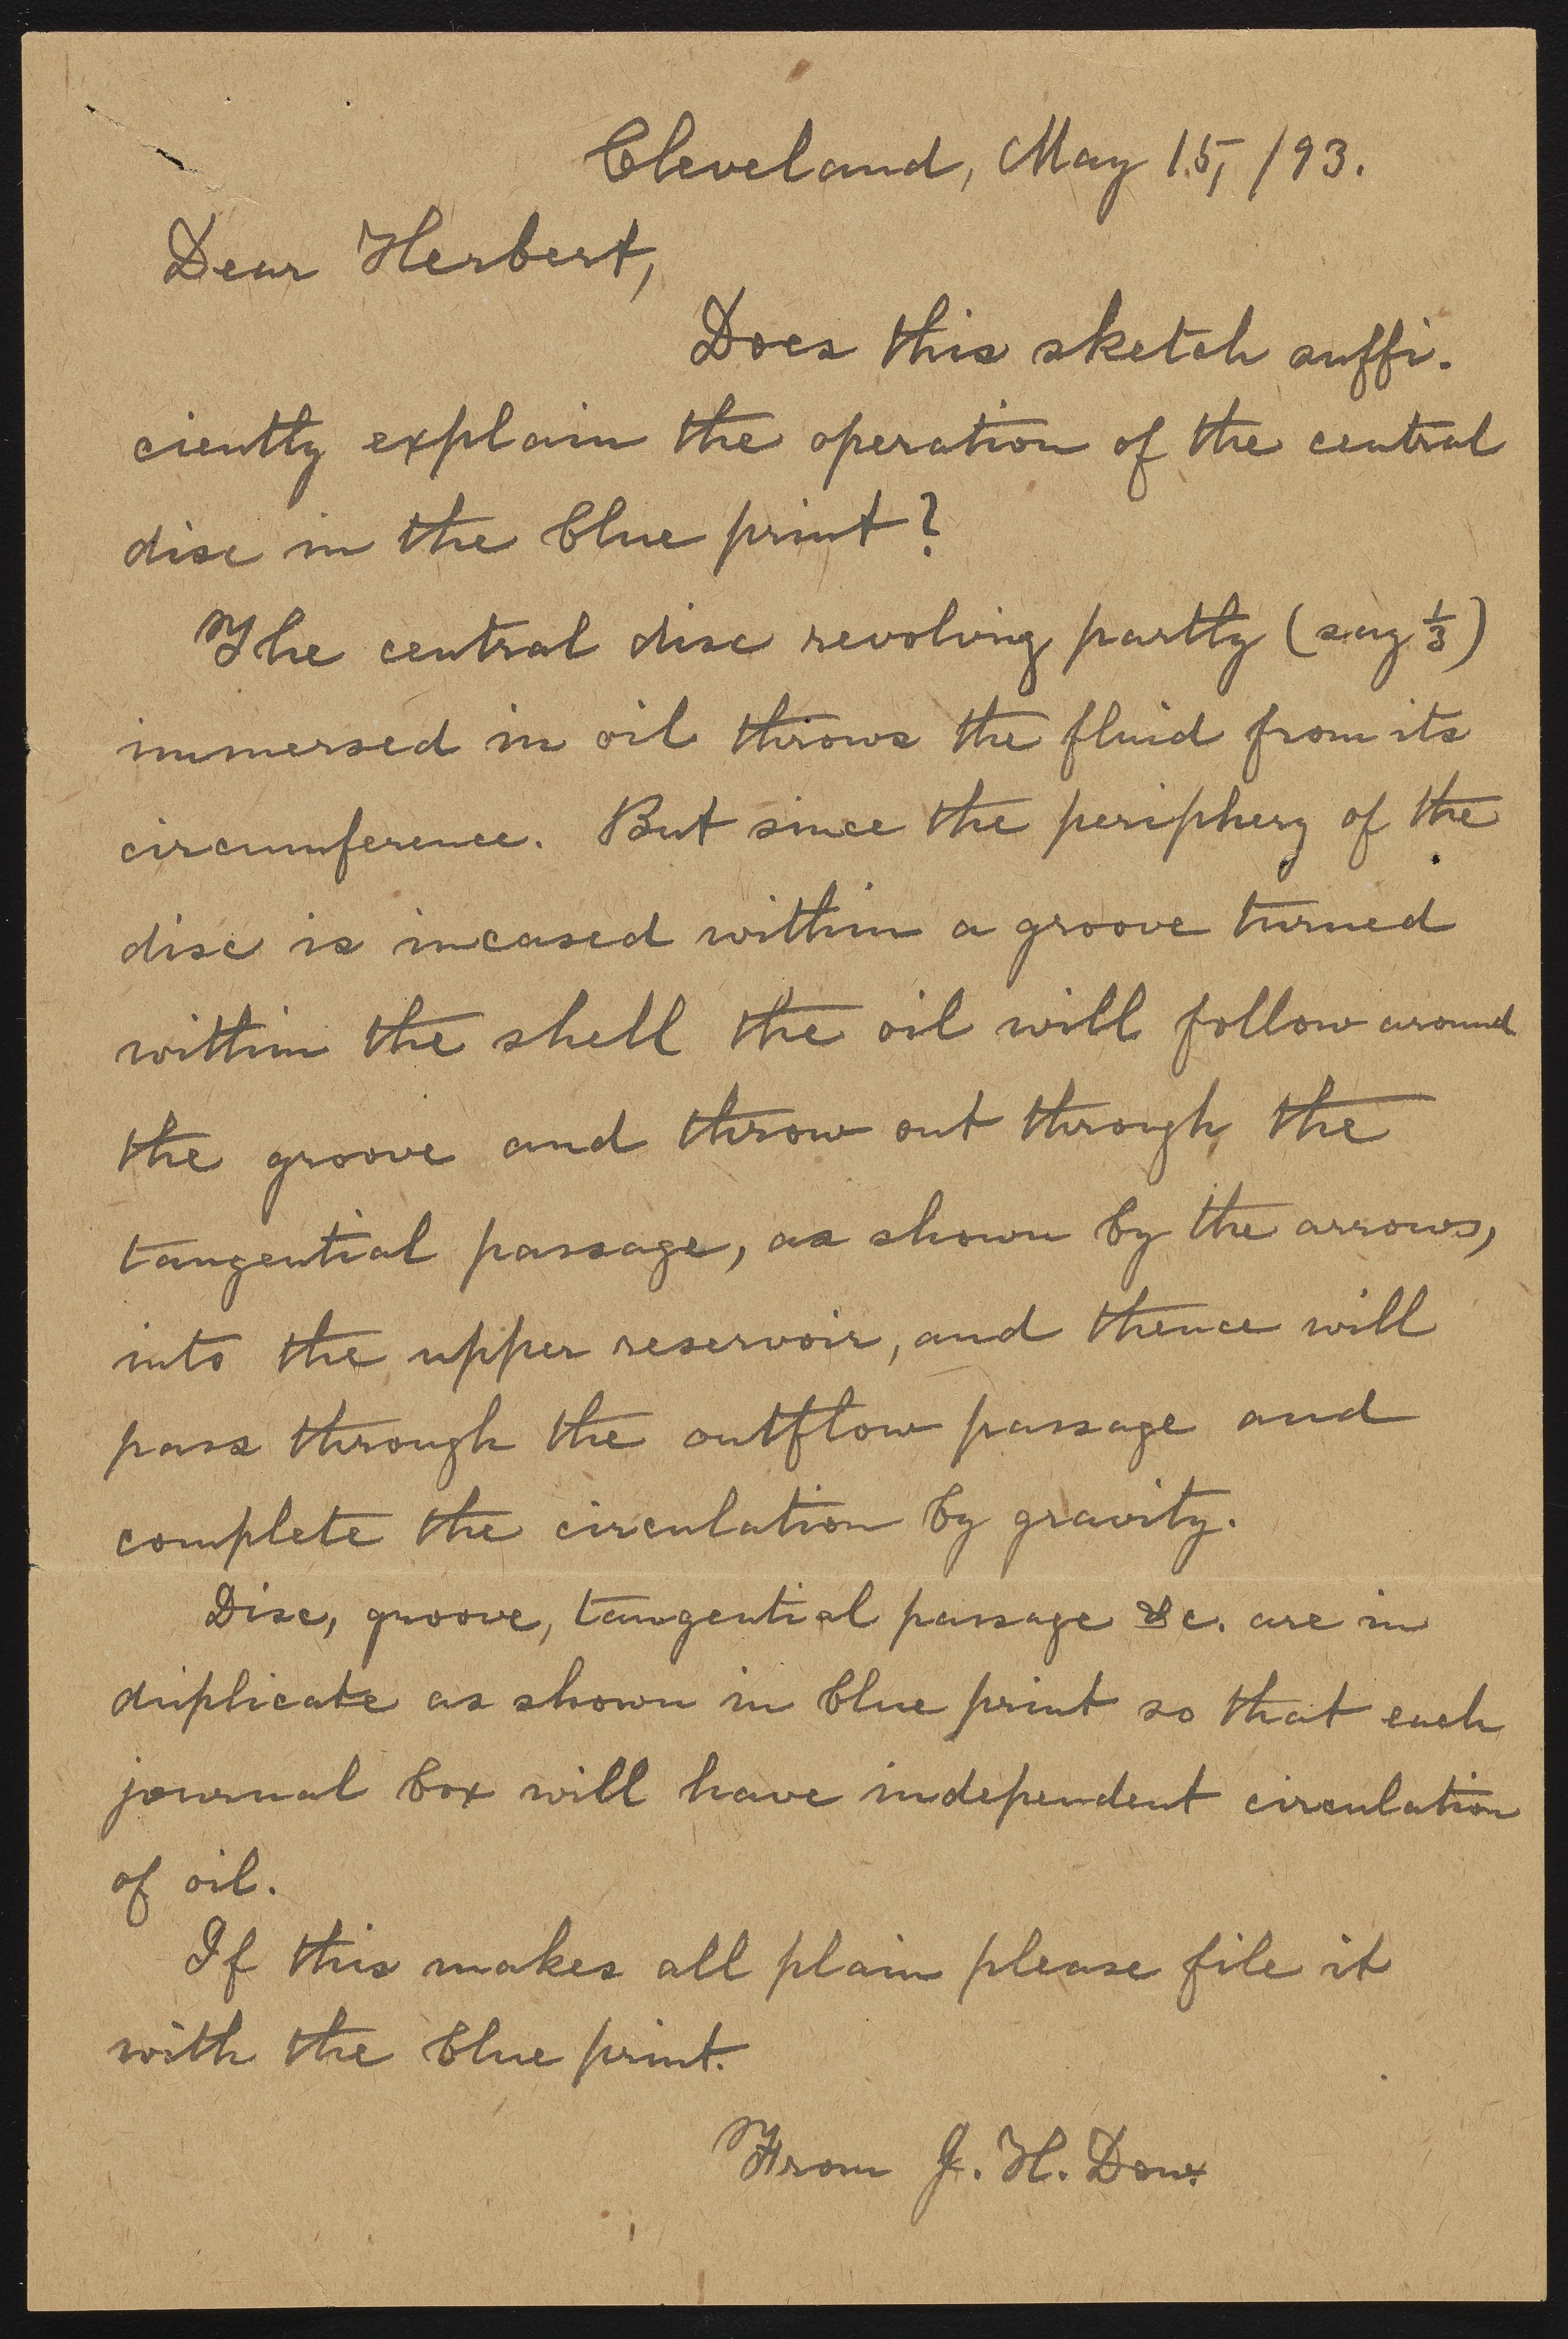 Cleveland, May 15, /93.
Dear Herbert,
Does this sketch suffi-
ciently explain the operation of the central
disc in the blue print?
The central disc revolving partly (say 1/3)
immersed in oil throws the fluid from its
circumference. But since the periphery of the
disc is incased within a groove turned
within the shell the oil will follow around
the groove and throw out through the
tangential passage, as shown by the arrows,
into the upper reservoir, and thence will
pass through the outflow passage and
complete the circulation by gravity.
Disc, groove, tangential passage &c. are in
duplicate as shown in blue print so that each
journal box will have independent circulation
of oil.
If this makes all plain please file it
with the blue print.
From J. H. Dow.